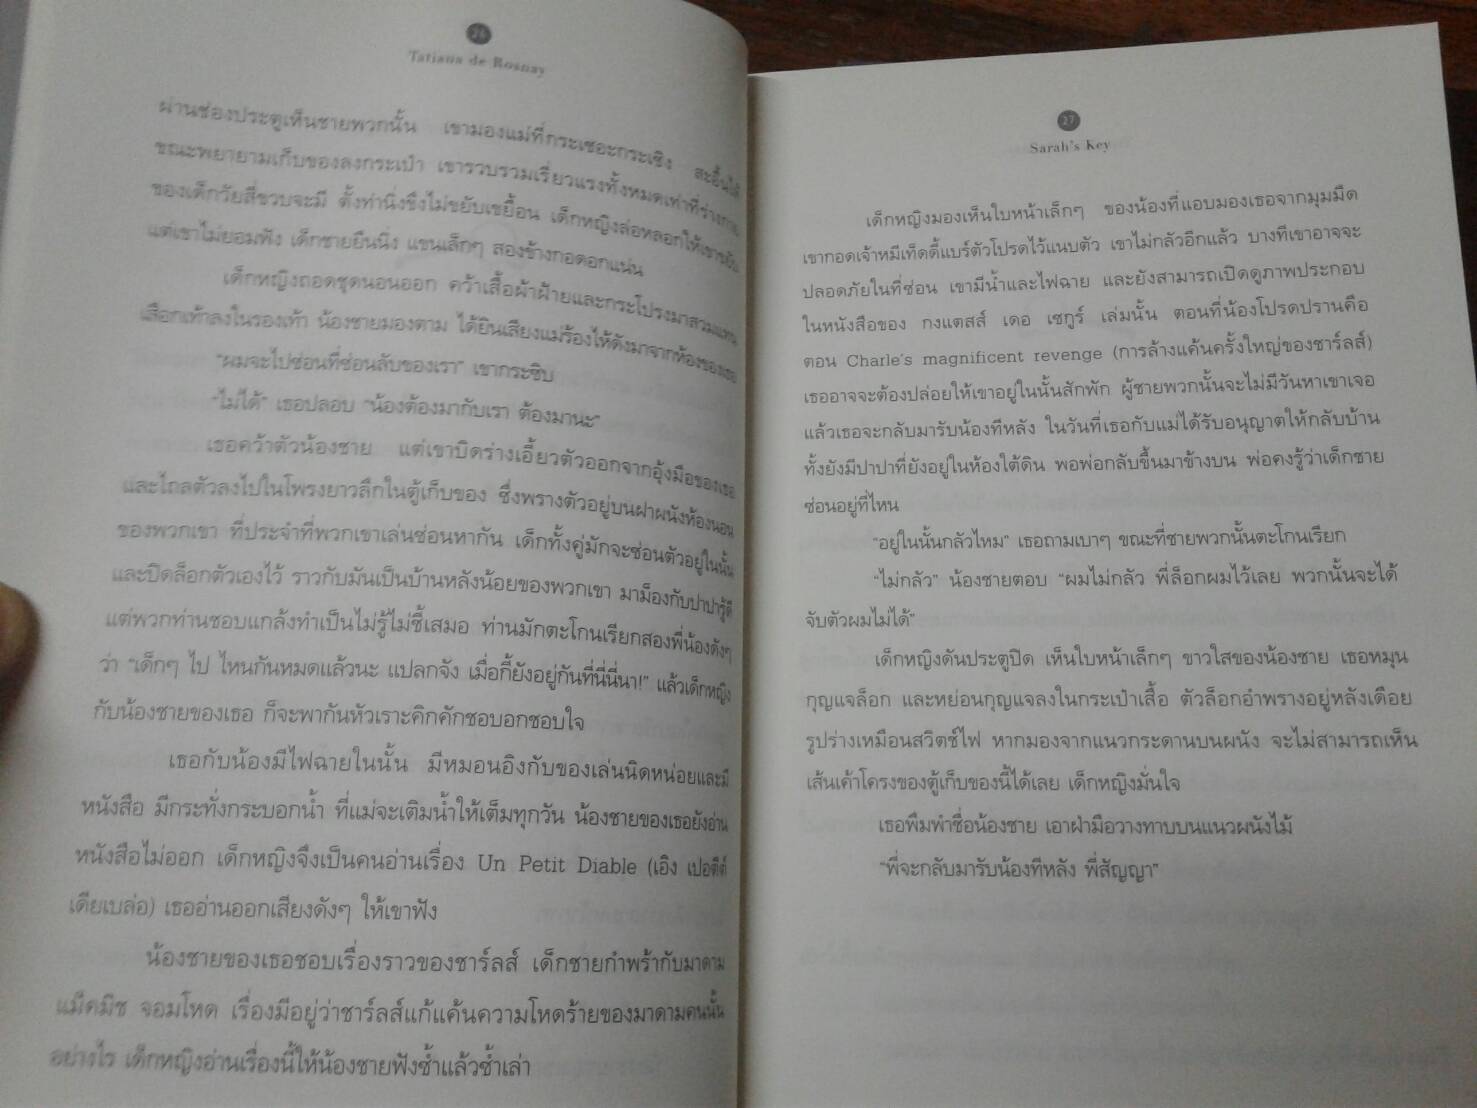 26
Tatiana de Rosnay
ผ่านช่องประตูเห็นชายพวกนั้น เขามองแม่ที่กระเซอะกระเซิง สะอื้นไห้
ขณะพยายามเก็บของลงกระเป๋า เขารวบรวมเรี่ยวแรงทั้งหมดเท่าที่ร่างกาย
ของเด็กวัยสี่ขวบจะมี ตั้งท่านิ่งขึงไม่ขยับเขยื้อน เด็กหญิงล่อหลอกให้เขาขยับ
แต่เขาไม่ยอมฟัง เด็กชายยืนนิ่ง แขนเล็กๆ สองข้างกอดอกแน่น
เด็กหญิงถอดชุดนอนออก คว้าเสื้อผ้าฝ้ายและกระโปรงมาสวมแทน
เสือกเท้าลงในรองเท้า น้องชายมองตาม ได้ยินเสียงแม่ร้องไห้ดังมาจากห้องของเธอ
“ผมจะไปซ่อนที่ซ่อนลับของเรา” เขากระซิบ
“ไม่ได้” เธอปลอบ “น้องต้องมากับเรา ต้องมานะ”
เธอคว้าตัวน้องชาย แต่เขาบิดร่างเอี้ยวตัวออกจากอุ้งมือของเธอ
และไถลตัวลงไปในโพรงยาวลึกในตู้เก็บของ ซึ่งพรางตัวอยู่บนฝาผนังห้องนอน
ของพวกเขา ที่ประจำที่พวกเขาเล่นซ่อนหากัน เด็กทั้งคู่มักจะซ่อนตัวอยู่ในนั้น
และปิดล็อกตัวเองไว้ ราวกับมันเป็นบ้านหลังน้อยของพวกเขา มาม็องกับปาปารู้ดี
แต่พวกท่านชอบแกล้งทำเป็นไม่รู้ไม่ชี้เสมอ ท่านมักตะโกนเรียกสองพี่น้องดังๆ
ว่า “เด็กๆ ไป ไหนกันหมดแล้วนะ แปลกจัง เมื่อกี้ยังอยู่กันที่นี่นี่นา!” แล้วเด็กหญิง
กับน้องชายของเธอ ก็จะพากันหัวเราะคิกคักชอบอกชอบใจ
เธอกับน้องมีไฟฉายในนั้น มีหมอนอิงกับของเล่นนิดหน่อยและมี
หนังสือ มีกระทั่งกระบอกน้ำ ที่แม่จะเติมน้ำให้เต็มทุกวัน น้องชายของเธอยังอ่าน
หนังสือไม่ออก เด็กหญิงจึงเป็นคนอ่านเรื่อง Un Petit Diable (เอิง เปอตีต์
เดียเบล่อ) เธออ่านออกเสียงดังๆ ให้เขาฟัง
น้องชายของเธอชอบเรื่องราวของชาร์ลส์ เด็กชายกำพร้ากับมาดาม
แม็คมิช จอมโหด เรื่องมีอยู่ว่าชาร์ลส์แก้แค้นความโหดร้ายของมาดามคนนั้น
อย่างไร เด็กหญิงอ่านเรื่องนี้ให้น้องชายฟังซ้ำแล้วซ้ำเล่า
27
Sarah's Key
เด็กหญิงมองเห็นใบหน้าเล็กๆ ของน้องที่แอบมองเธอจากมุมมืด
เขากอดเจ้าหมีเท็ดดี้แบร์ตัวโปรดไว้แนบตัว เขาไม่กลัวอีกแล้ว บางทีเขาอาจจะ
ปลอดภัยในที่ซ่อน เขามีน้ำและไฟฉาย และยังสามารถเปิดดูภาพประกอบ
ในหนังสือของ กงแตสส์ เดอ เซกูร์ เล่มนั้น ตอนที่น้องโปรดปรานคือ
ตอน Charle's magnificent revenge (การล้างแค้นครั้งใหญ่ของชาร์ลส์)
เธออาจจะต้องปล่อยให้เขาอยู่ในนั้นสักพัก ผู้ชายพวกนั้นจะไม่มีวันหาเขาเจอ
แล้วเธอจะกลับมารับน้องทีหลัง ในวันที่เธอกับแม่ได้รับอนุญาตให้กลับบ้าน
ทั้งยังมีปาปาที่ยังอยู่ในห้องใต้ดิน พอพ่อกลับขึ้นมาข้างบน พ่อคงรู้ว่าเด็กชาย
ซ่อนอยู่ที่ไหน
“อยู่ในนั้นกลัวไหม” เธอถามเบาๆ ขณะที่ชายพวกนั้นตะโกนเรียก
“ไม่กลัว” น้องชายตอบ “ผมไม่กลัว พี่ล็อกผมไว้เลย พวกนั้นจะได้
จับตัวผมไม่ได้”
เด็กหญิงดันประตูปิด เห็นใบหน้าเล็กๆ ขาวใสของน้องชาย เธอหมุน
กุญแจล็อก และหย่อนกุญแจลงในกระเป๋าเสื้อ ตัวล็อกอำพรางอยู่หลังเดือย
รูปร่างเหมือนสวิตช์ไฟ หากมองจากแนวกระดานบนผนัง จะไม่สามารถเห็น
เส้นเค้าโครงของตู้เก็บของนี้ได้เลย เด็กหญิงมั่นใจ
เธอพึมพำชื่อน้องชาย เอาฝ่ามือวางทาบบนแนวผนังไม้
“พี่จะกลับมารับน้องทีหลัง พี่สัญญา”